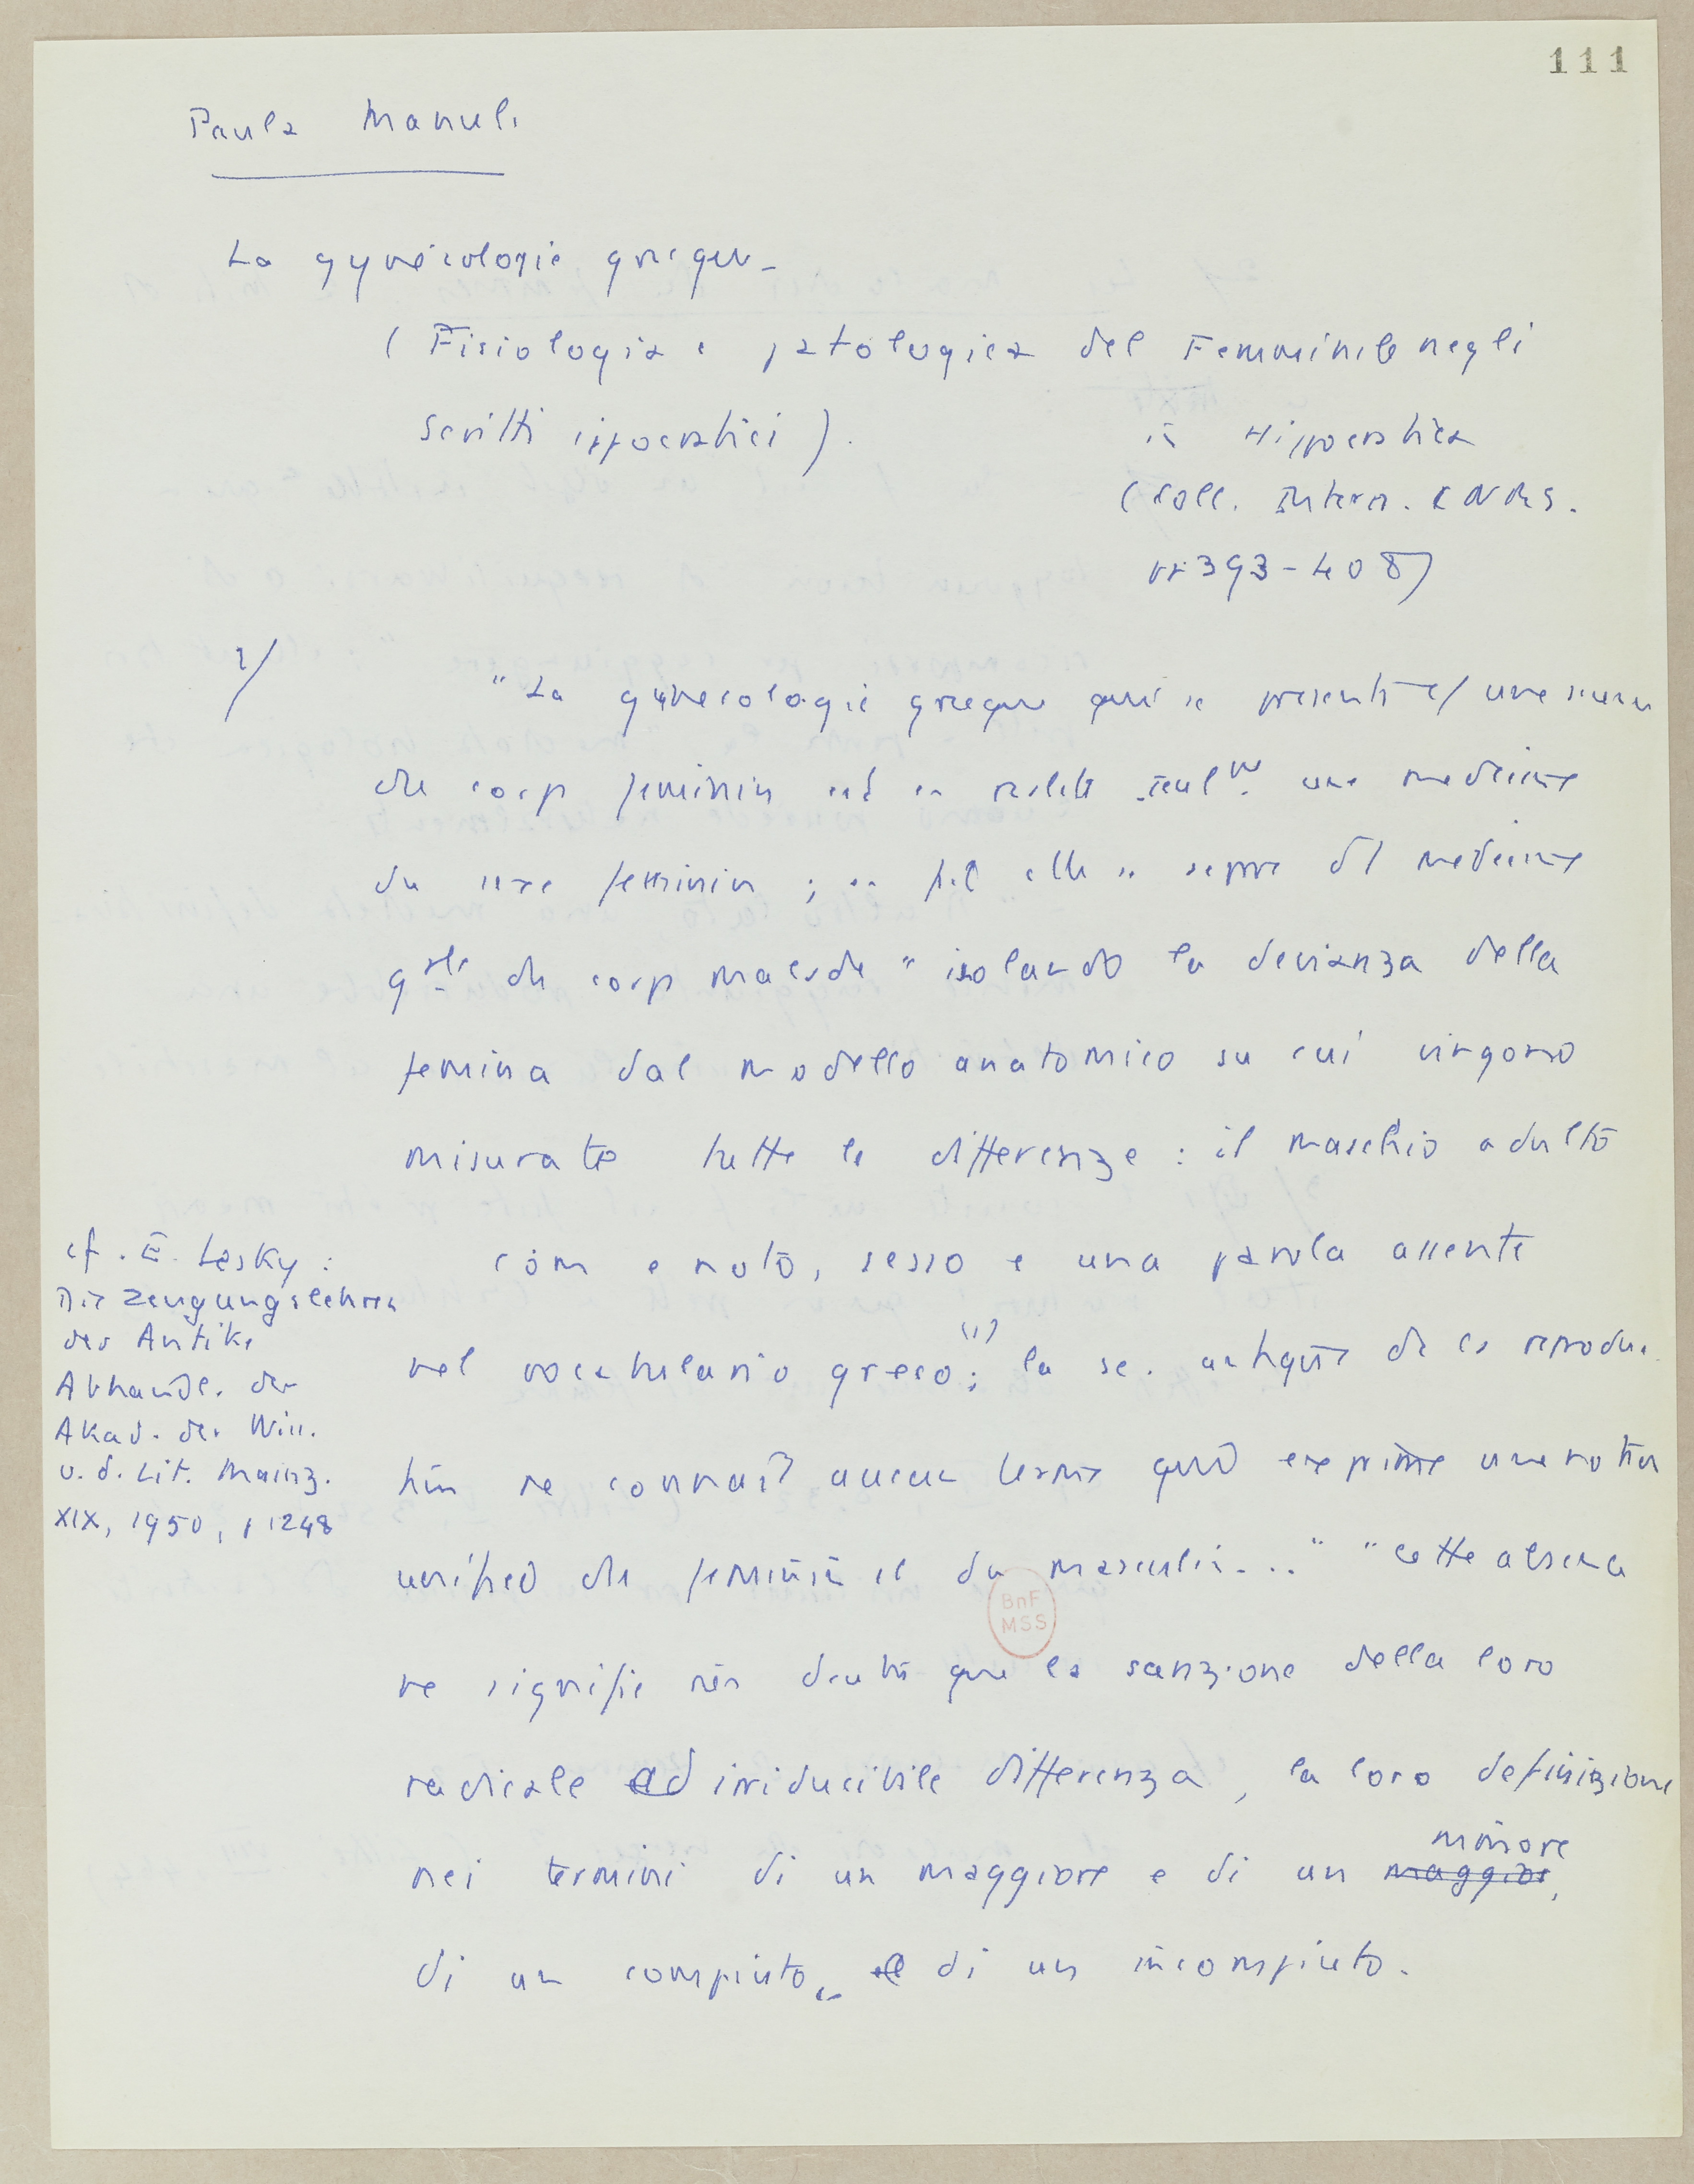 111
Paula Manuli
La gynécologie grecque
( Fisiologia e patologica del Femminile negli
scritti ippocratici ).
in Hippocratica
( Coll. Intern. CNRS.
pp 393-408)
1/
" La gynecologie grecque qui se presente c/ une
du corp feminin est en realité seulᵗ une medecine
du sexe feminin ; en fait elle se separe dl medecine
gˡᵉ du corp male " isolando la devianza della
femina dal modello anatomico su cui vingono
misurate tutte le differenze : il maschio adulto
com e noto, sesso e una parola assente
nel vocabulario greco ; (1) la sc. antique de la reproduc
tion ne connait aucun terme qui exprime une notion
unifiée du feminin et du masculin... " " cette absence
ne signifie rien d'autre que la sanzione della loro
radicale ed irriducibile differenza, la loro definizione
nei termini di un maggiore e di un maggior minore,
di un compiuto e di un incompiuto.
cf. E. Lesky :
Die Zeugungslehren
der Antike
Abhandl. der
Akad. der Wiss.
u. d. Lit. Mainz.
XIX, 1950, p 1248
BnF
MSS